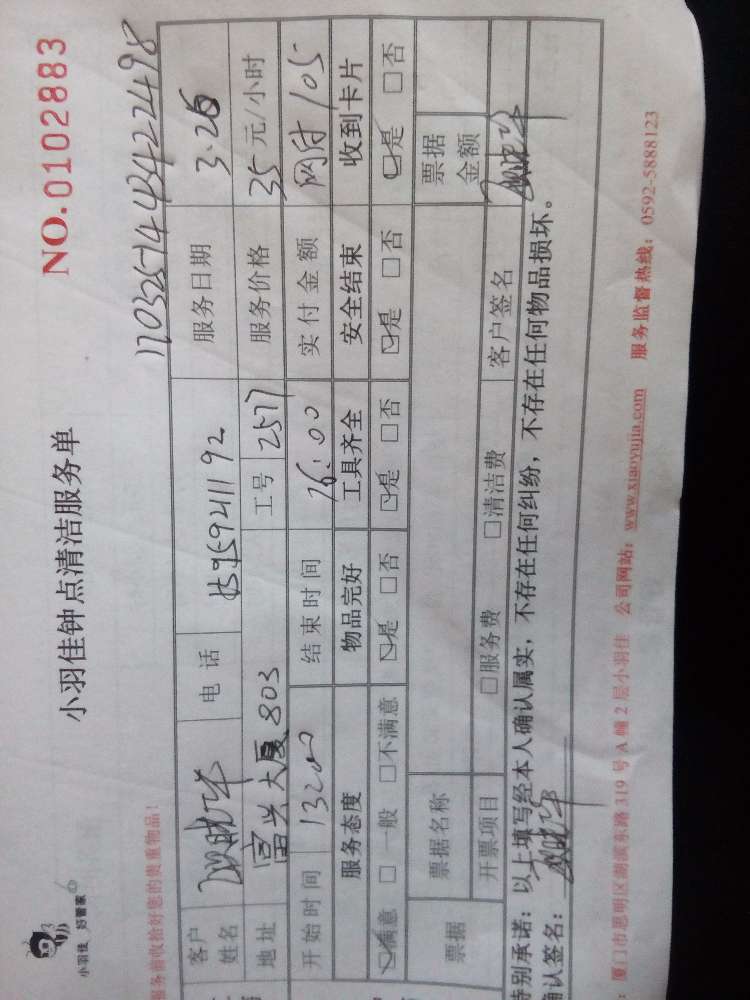 小羽佳 好管家
小羽佳钟点清洁服务单
NO.0102883
服务前收拾好您的贵重物品!
17032574434224498
客户姓名 电话 服务日期 3.26
地址 富兴大厦 803 工号 2577 服务价格 35元/小时
开始时间 13:00 结束时间 16:00 实付金额 网付105
服务态度 物品完好 工具齐全 安全结束 收到卡片
☑满意 □一般 □不满意 ☑是 □否 ☑是 □否 ☑是 □否 ☑是 □否
票据 票据名称 票据金额
开票项目 □服务费 □清洁费 客户签名
特别承诺:以上填写经本人确认属实,不存在任何纠纷,不存在任何物品损坏。
确认签名:
厦门市思明区湖滨东路319号A幢2层小羽佳 公司网站:www.xiaoyujia.com 服务监督热线:0592-5888123